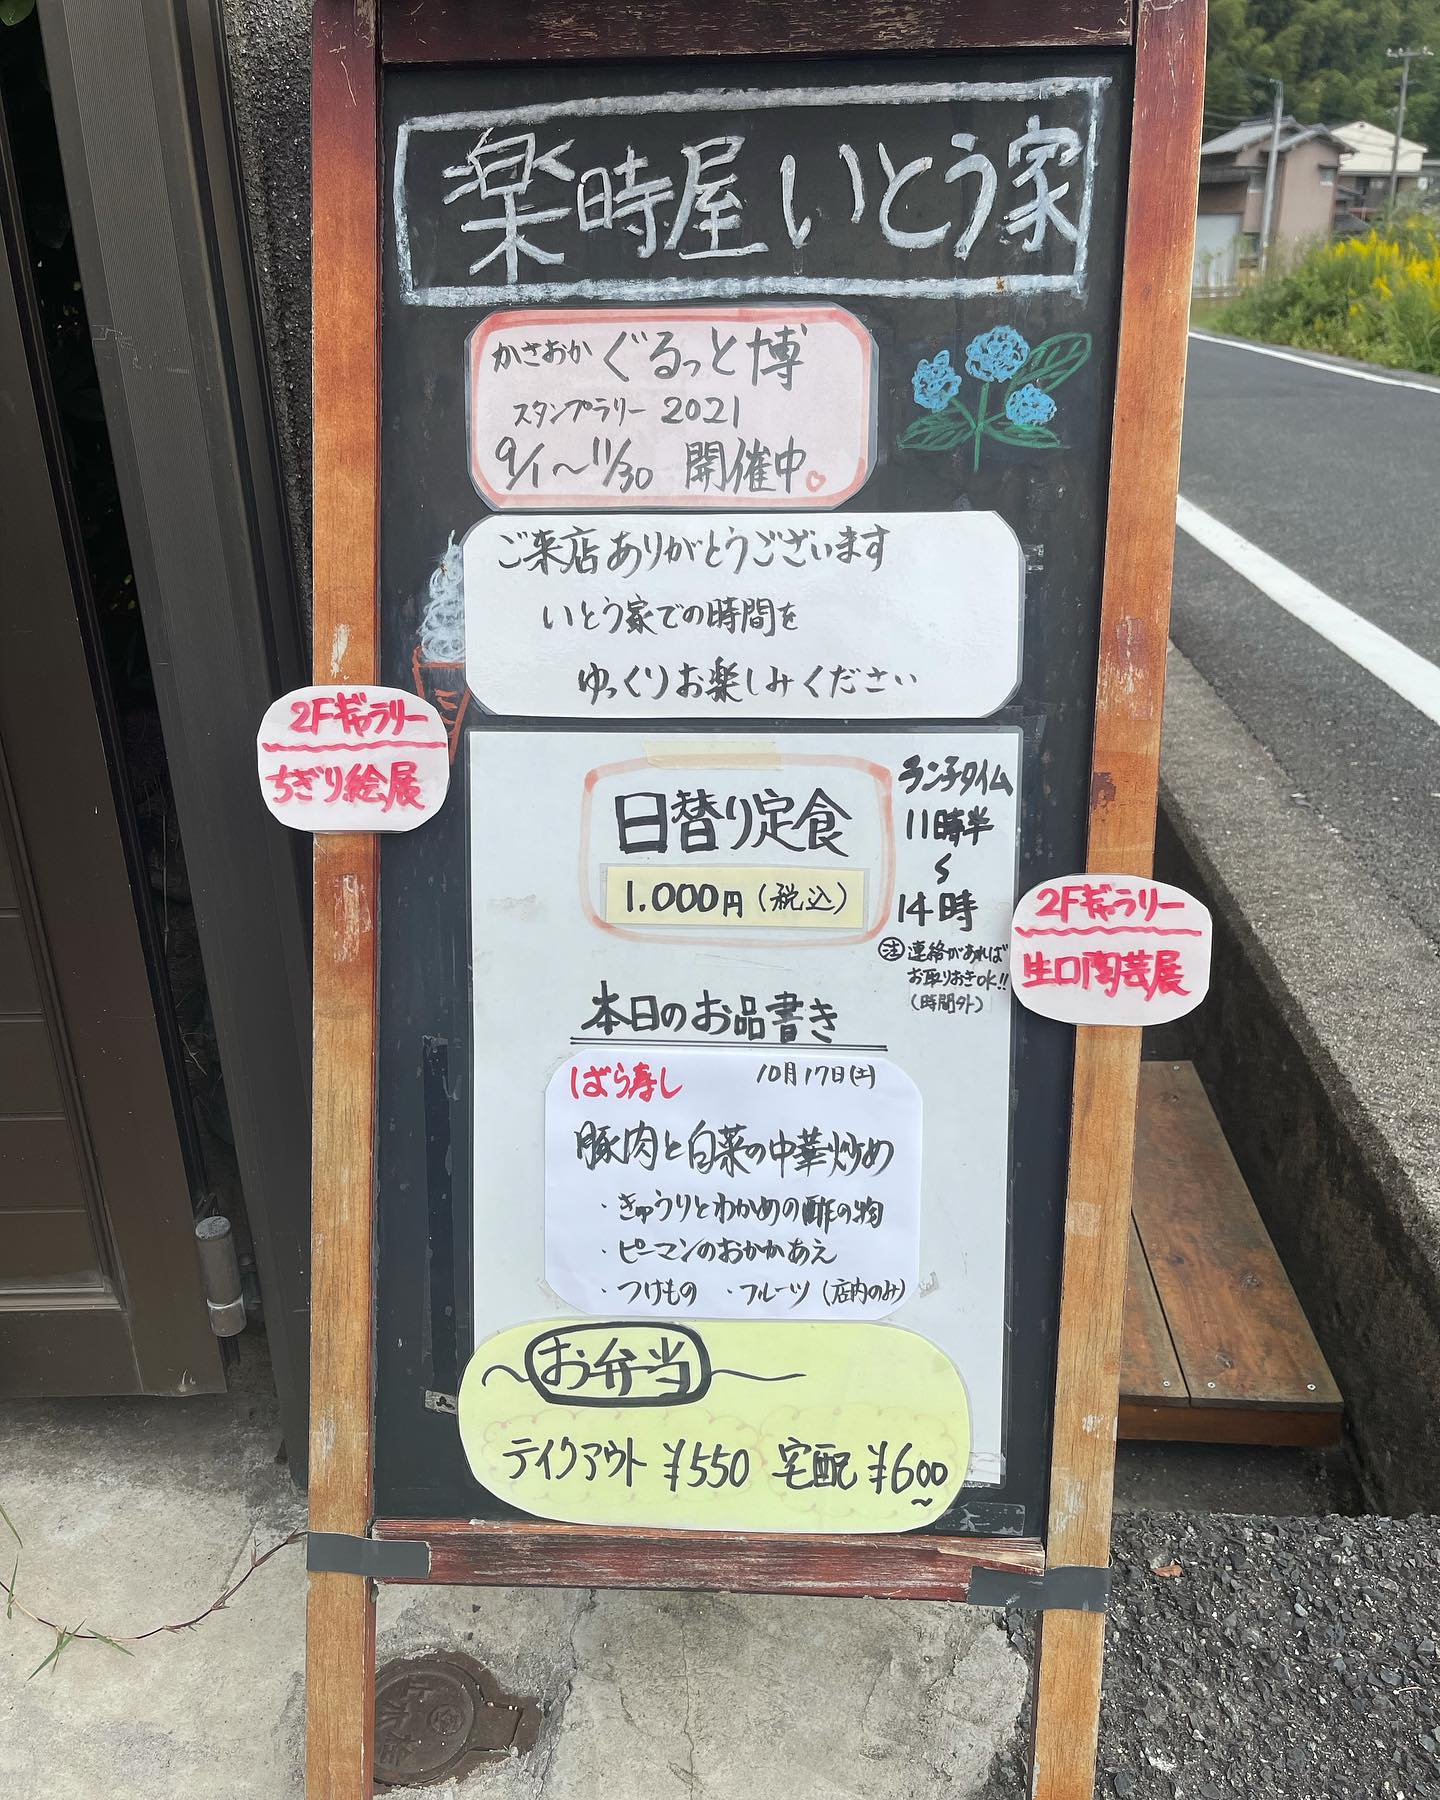 楽時屋 いとう家
かさおか ぐるっと博
スタンプラリー 2021
9/1〜11/30 開催中
ご来店ありがとうございます
いとう家での時間を
ゆっくりお楽しみください
2Fギャラリー
ちぎり絵展
日替り定食
1.000円(税込)
ランチタイム
11時半
〜
14時
注 連絡があれば
お取りおきOK!!
(時間外)
2Fギャラリー
生口陶芸展
本日のお品書き
ばら寿し 10月17日(土)
豚肉と白菜の中華炒め
・きゅうりとわかめの酢の物
・ピーマンのおかかあえ
・つけもの ・フルーツ(店内のみ)
〜お弁当〜
テイクアウト ¥550 宅配 ¥600〜